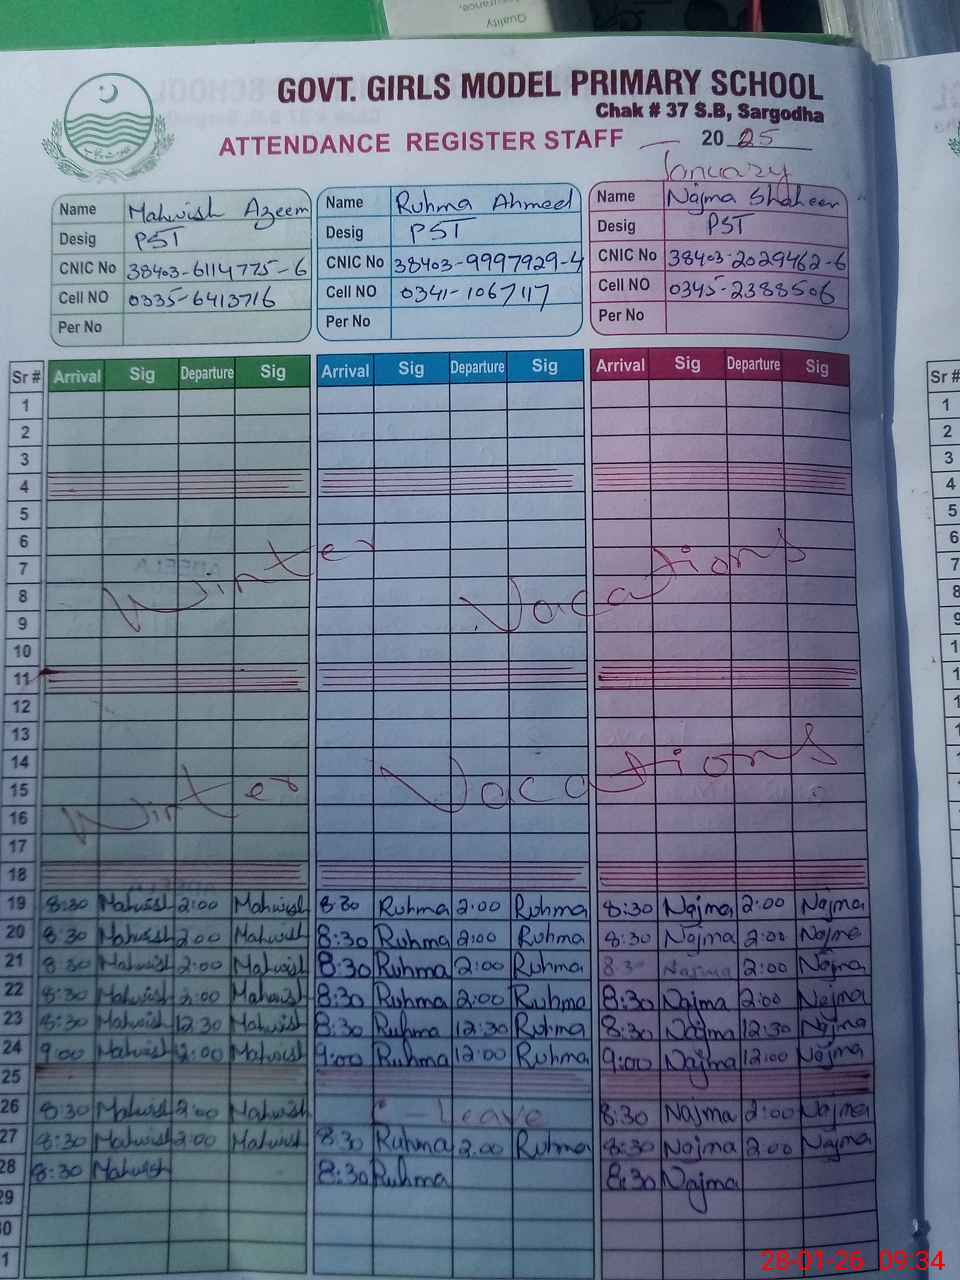 Quality
GOVT. GIRLS MODEL PRIMARY SCHOOL
Chak # 37 S.B, Sargodha
ATTENDANCE REGISTER STAFF 2025
January
Name Mahwish Azeem Name Ruhma Ahmed Name Najma Shaheen
Desig PST Desig PST Desig PST
CNIC No 38403-6114775-6 CNIC No 38403-9997929-4 CNIC No 38403-2029462-6
Cell NO 0335-6413716 Cell NO 0341-1067117 Cell NO 0345-2388506
Per No Per No Per No
Sr # Arrival Sig Departure Sig Arrival Sig Departure Sig Arrival Sig Departure Sig Sr #
1 1
2 2
3 3
4 4
5 5
6 6
7 7
8 8
9
10
11
Winter Vacations
12
13
14
15
16
17
18
Winter Vacations
19 8:30 Mahwish 2:00 Mahwish 8:30 Ruhma 2:00 Ruhma 8:30 Najma 2:00 Najma
20 8:30 Mahwish 2:00 Mahwish 8:30 Ruhma 2:00 Ruhma 8:30 Najma 2:00 Najma
21 8:30 Mahwish 2:00 Mahwish 8:30 Ruhma 2:00 Ruhma 8:30 Najma 2:00 Najma
22 8:30 Mahwish 2:00 Mahwish 8:30 Ruhma 2:00 Ruhma 8:30 Najma 2:00 Najma
23 8:30 Mahwish 12:30 Mahwish 8:30 Ruhma 12:30 Ruhma 8:30 Najma 12:30 Najma
24 9:00 Mahwish 12:00 Mahwish 9:00 Ruhma 12:00 Ruhma 9:00 Najma 12:00 Najma
25
26 8:30 Mahwish 2:00 Mahwish C - Leave 8:30 Najma 2:00 Najma
27 8:30 Mahwish 2:00 Mahwish 8:30 Ruhma 2:00 Ruhma 8:30 Najma 2:00 Najma
28 8:30 Mahwish 8:30 Ruhma 8:30 Najma
29
30
31
28-01-26 09:34